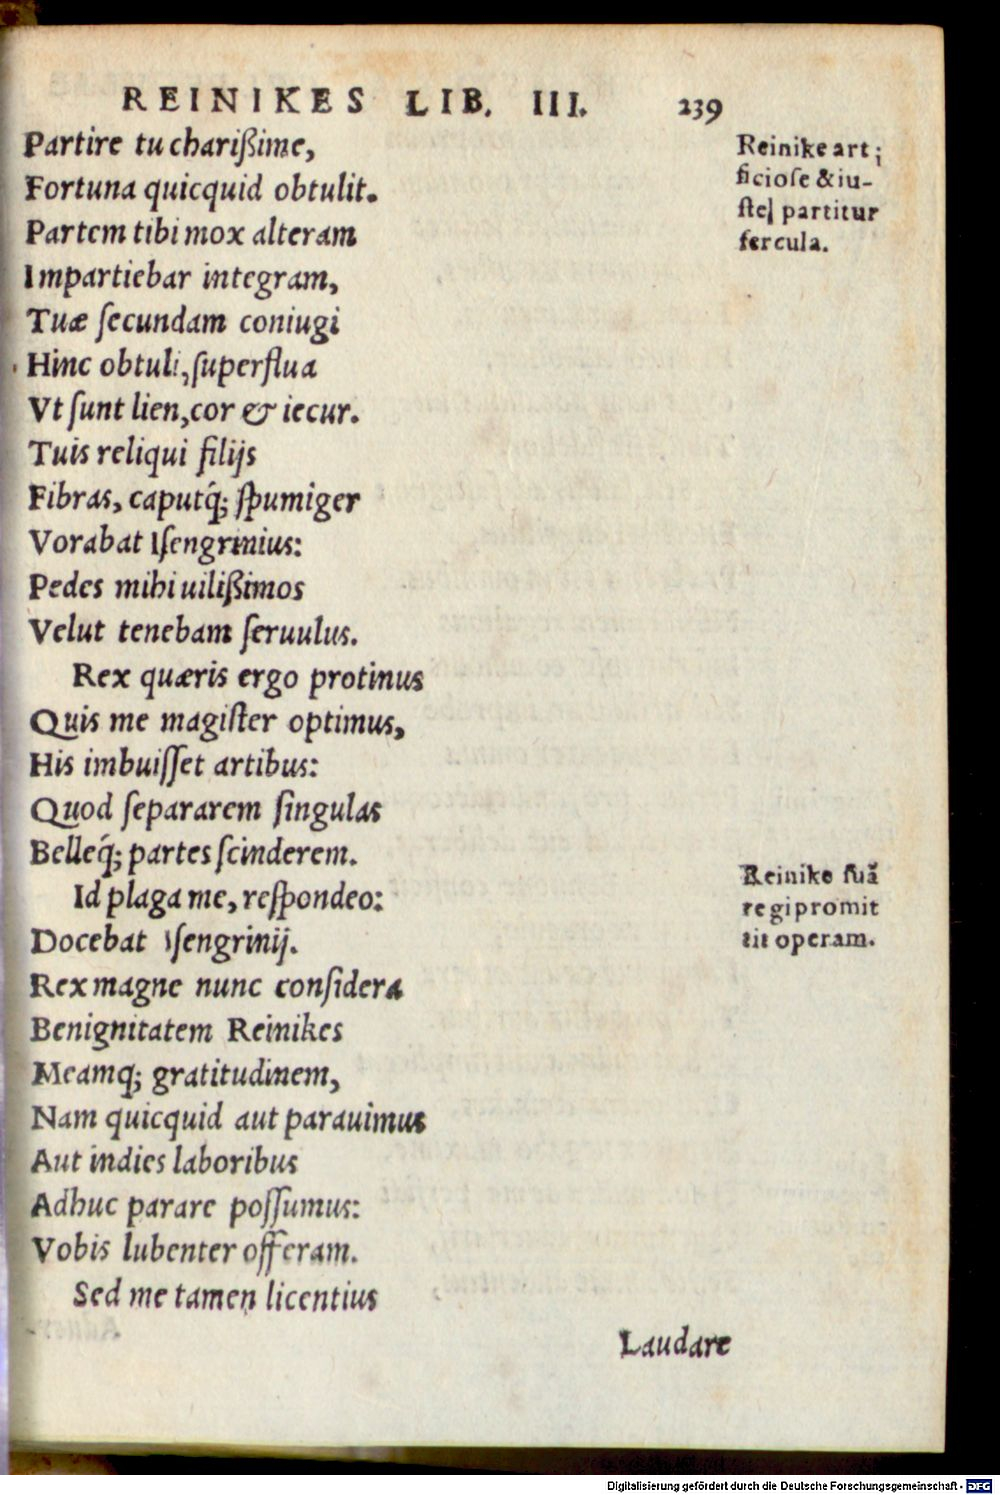 REINIKES LIB. III. 239
Partire tu charißime,
Fortuna quicquid obtulit.
Partem tibi mox alteram
Impartiebar integram,
Tuæ ſecundam coniugi
Hinc obtuli, ſuperflua
Vt ſunt lien, cor & iecur.
Tuis reliqui filijs
Fibras, caputq́; ſpumiger
Vorabat Iſengrinius:
Pedes mihi uilißimos
Velut tenebam ſeruulus.
Rex quæris ergo protinus
Quis me magiſter optimus,
His imbuiſſet artibus:
Quod ſepararem ſingulas
Belleq́; partes ſcinderem.
Id plaga me, reſpondeo:
Docebat Iſengrinij.
Rex magne nunc conſidera
Benignitatem Reinikes
Meamq; gratitudinem,
Nam quicquid aut parauimus
Aut indies laboribus
Adhuc parare poſſumus:
Vobis lubenter offeram.
Sed me tamen licentius
Laudare
Reinike arti
ficioſe & iu-
ſte partitur
fercula.
Reinike ſuã
regi promit
tit operam.
Digitalisierung gefördert durch die Deutsche Forschungsgemeinschaft - DFG